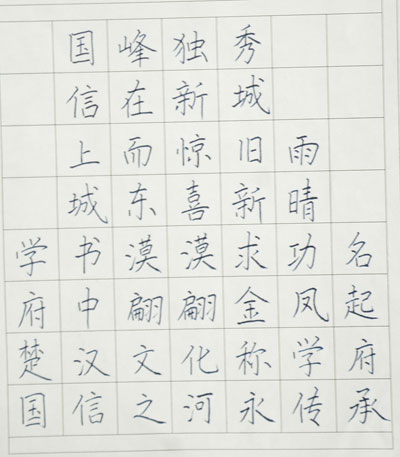 国峰独秀
信在新城
上而惊旧雨
城东喜新晴
学书漠漠求功名
府中翩翩金凤起
楚汉文化称学府
国信之河永传承